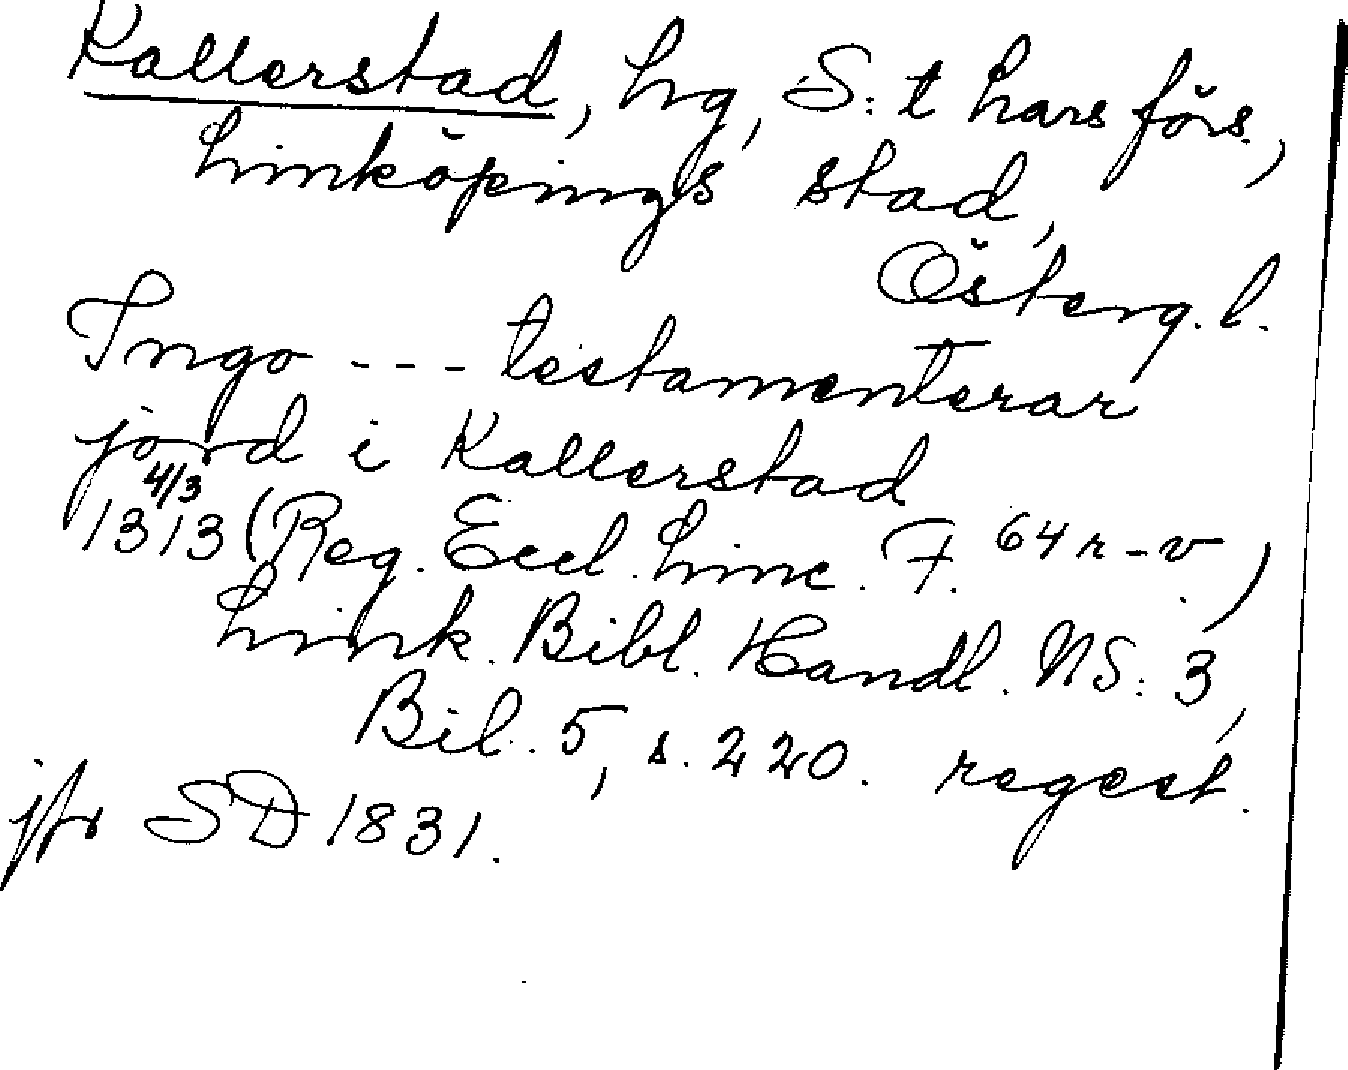 Kallerstad, hg, S:t Lars förs.,
Linköpings stad,
Österg. l.
Ingo --- testamenterar
jord i Kallerstad
4/3
1313 (Reg. Eccl. Linc. F. 64 r-v.)
Link. Bibl. Handl. NS: 3,
Bil. 5, s. 220. regest.
jfr SD 1831.